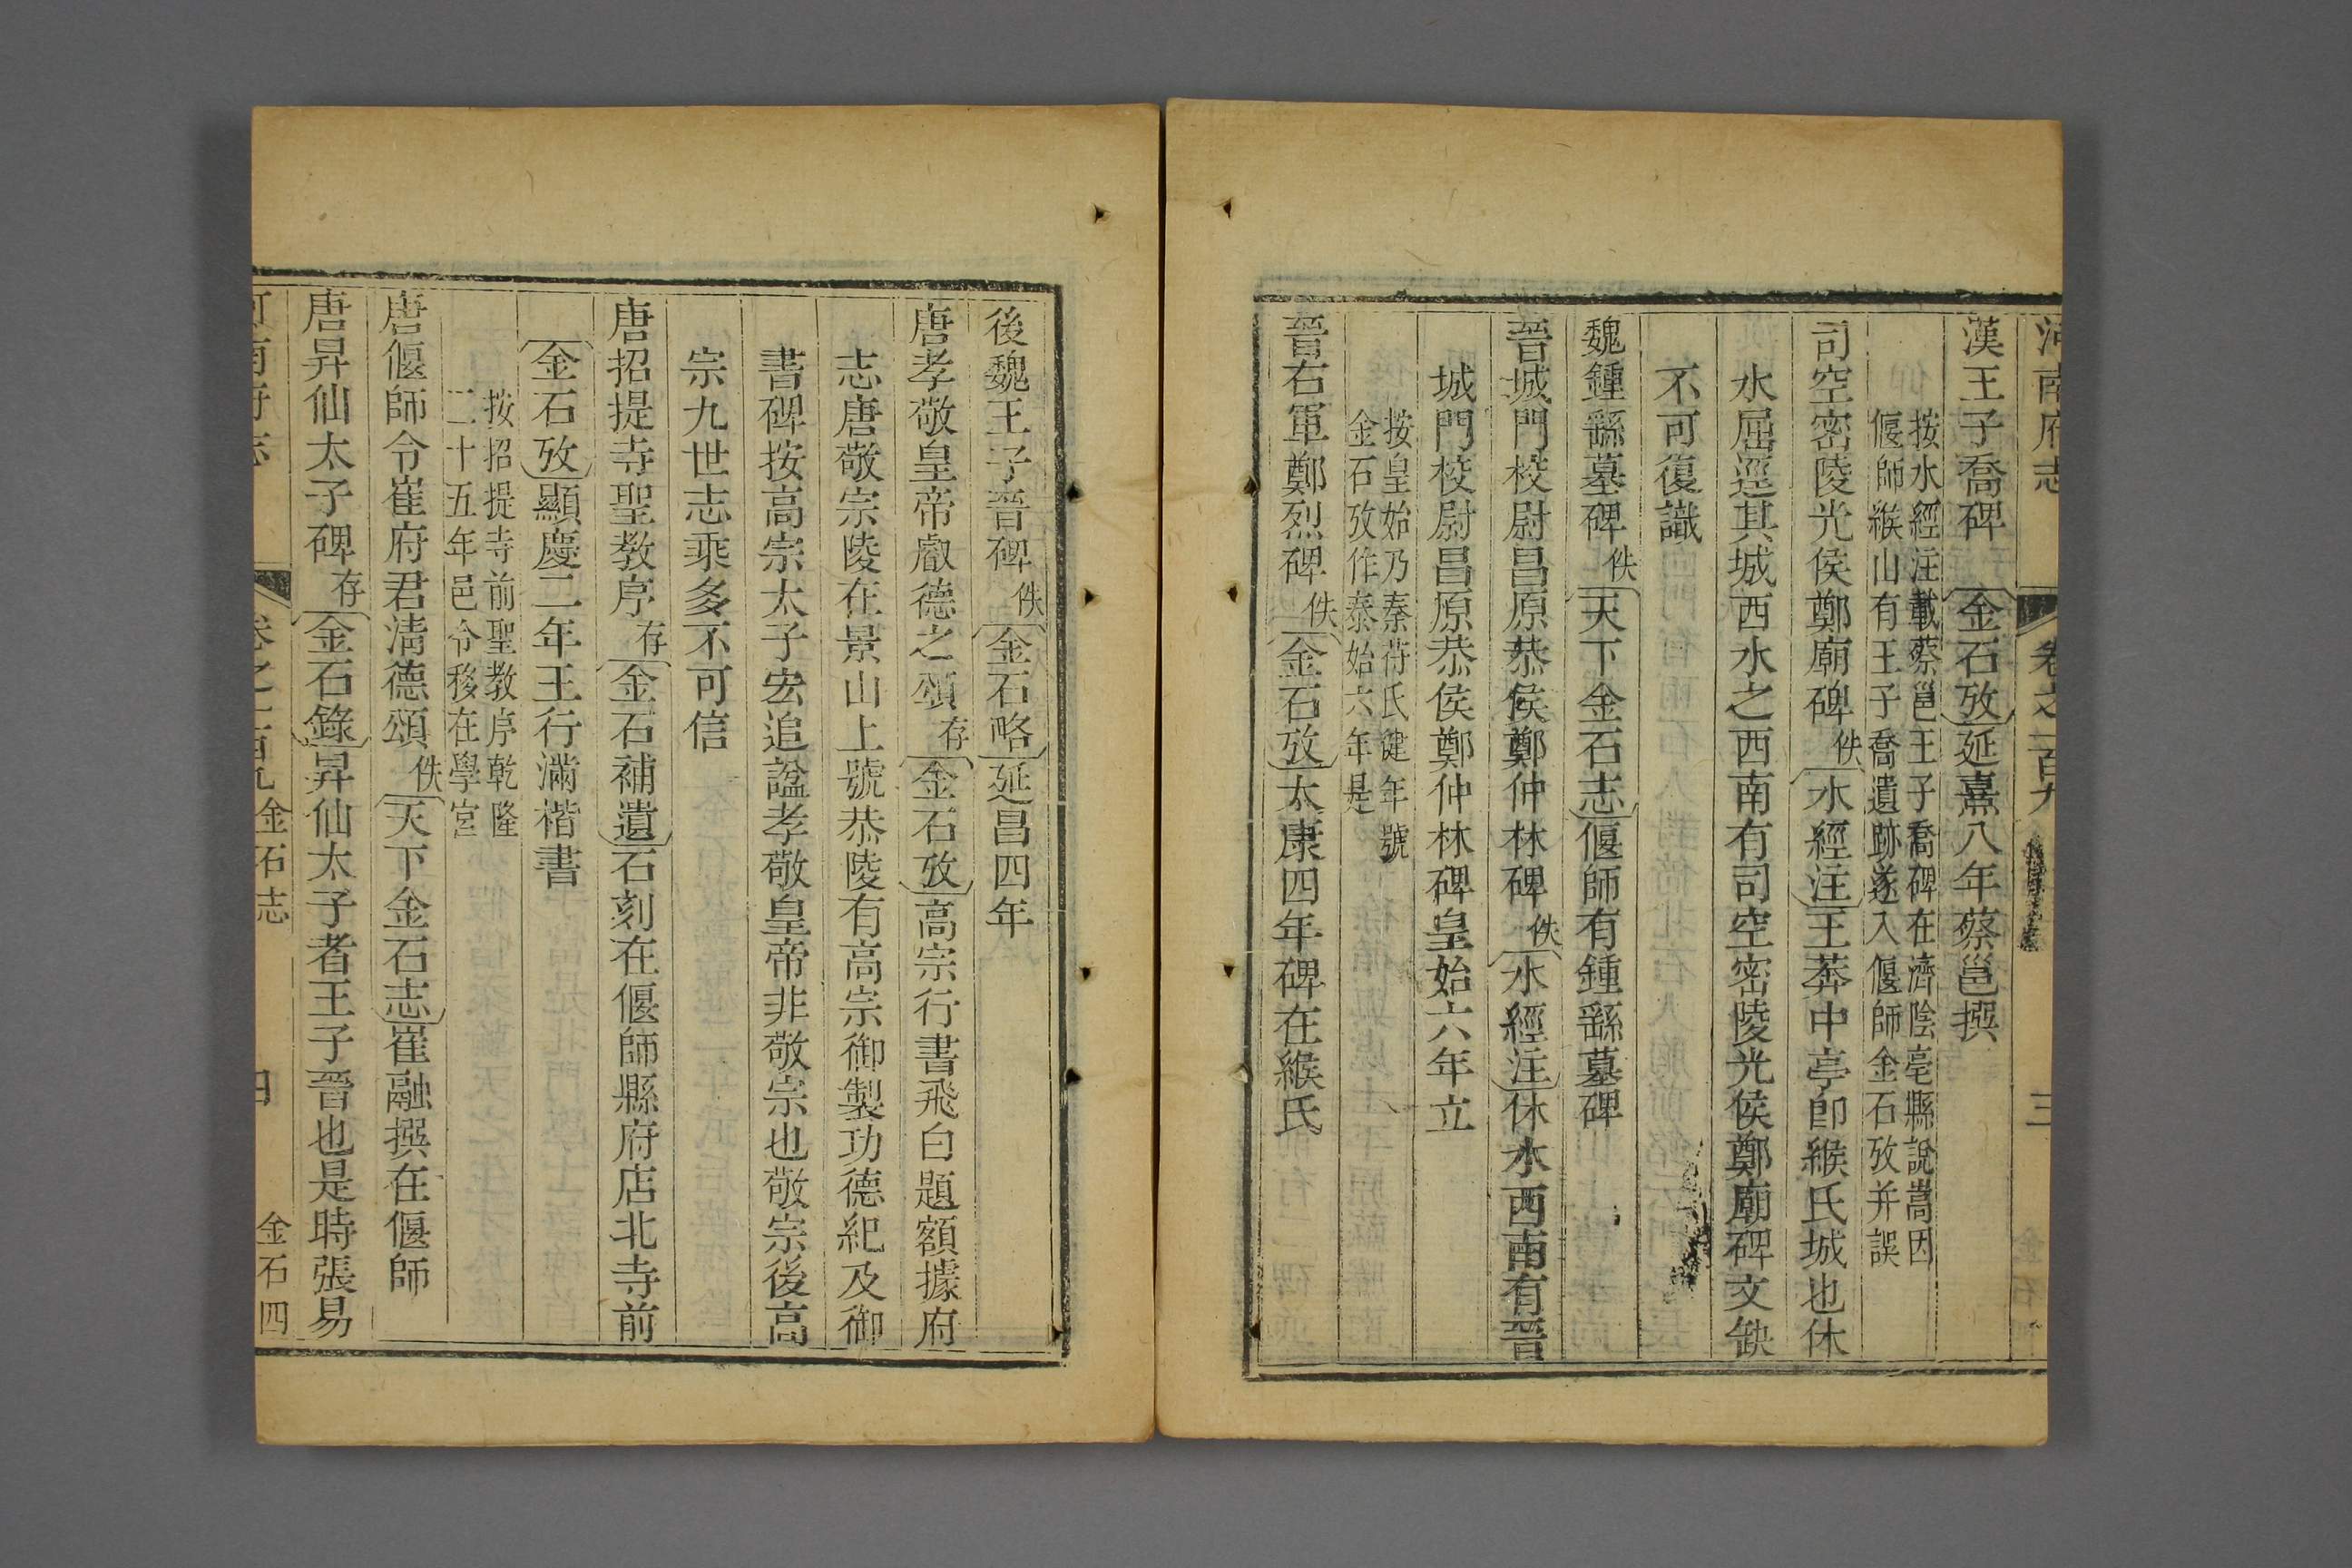 河南府志 卷之一百九 三
漢王子喬碑 金石攷延熹八年蔡邕撰
按水經注載蔡邕王子喬碑在濟陰亳縣說嵩因
偃師緱山有王子喬遺跡遂入偃師金石攷并誤
司空密陵光侯鄭廟碑佚水經注王莽中亭卽緱氏城也休
水屈逕其城西水之西南有司空密陵光侯鄭廟碑文缺
不可復識
魏鍾繇墓碑佚天下金石志偃師有鍾繇墓碑
晉城門校尉昌原恭侯鄭仲林碑佚水經注休水西南有晉
城門校尉昌原恭侯鄭仲林碑皇始六年立
按皇始乃秦苻氏健年號
金石攷作泰始六年是
晉右軍鄭烈碑佚金石攷太康四年碑在緱氏
後魏王子晉碑佚金石略延昌四年
唐孝敬皇帝叡德之頌存金石攷高宗行書飛白題額據府
志唐敬宗陵在景山上號恭陵有高宗御製功德紀及御
書碑按高宗太子宏追諡孝敬皇帝非敬宗也敬宗後高
宗九世志乘多不可信
唐招提寺聖教序存金石補遺石刻在偃師縣府店北寺前
金石攷顯慶二年王行滿楷書
按招提寺前聖教序乾隆
二十五年邑令移在學宮
唐偃師令崔府君淸德頌佚天下金石志崔融撰在偃師
唐昇仙太子碑存金石錄昇仙太子者王子晉也是時張易
河南府志 卷之一百九 金石志 四 金石四